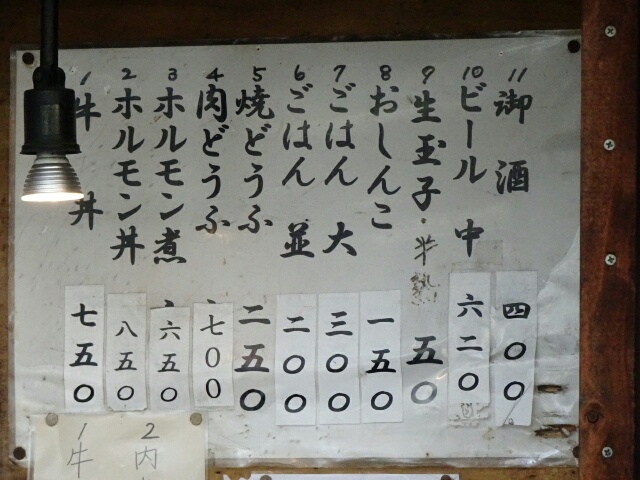 1 牛丼 七五〇
2 ホルモン丼 八五〇
3 ホルモン煮 六五〇
4 肉どうふ 七〇〇
5 焼どうふ 二五〇
6 ごはん 並 二〇〇
7 ごはん 大 三〇〇
8 おしんこ 一五〇
9 生玉子・半熟 五〇
10 ビール 中 六二〇
11 御酒 四〇〇
1 牛
2 内